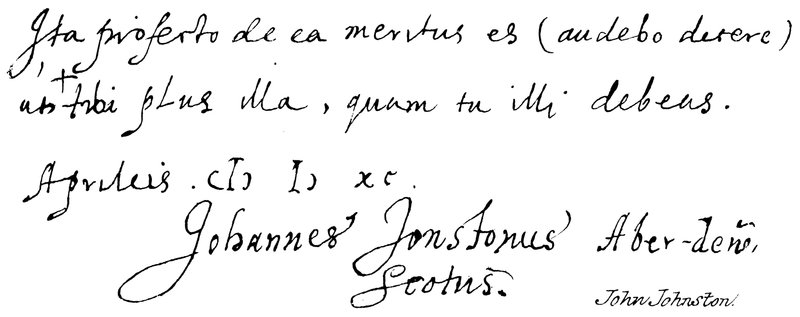 Ita profecto de ea meritus es (audebo dicere)
uti tibi plus illa, quam tu illi debeas.
Aprileis. cIɔ Iɔ xc.
Johannes Jonstonus Aber-deñ,
Scotus.
John Johnston.